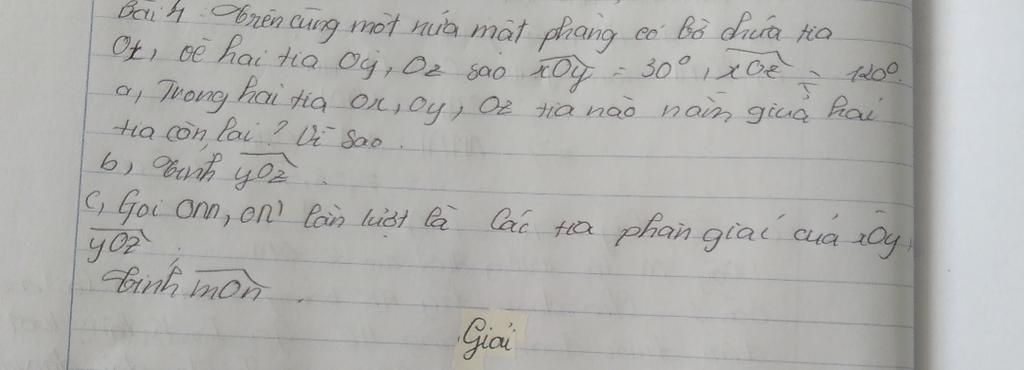 Bài 4: Trên cùng một nửa mặt phẳng có bờ chứa tia
Ox, vẽ hai tia Oy, Oz sao xOy = 30°, xOz = 120°.
a, Trong hai tia Ox, Oy, Oz tia nào nằm giữa hai
tia còn lại? Vì sao.
b, Tính yOz.
c, Gọi Om, On lần lượt là các tia phân giác của xOy,
yOz.
Tính mOn.
Giải